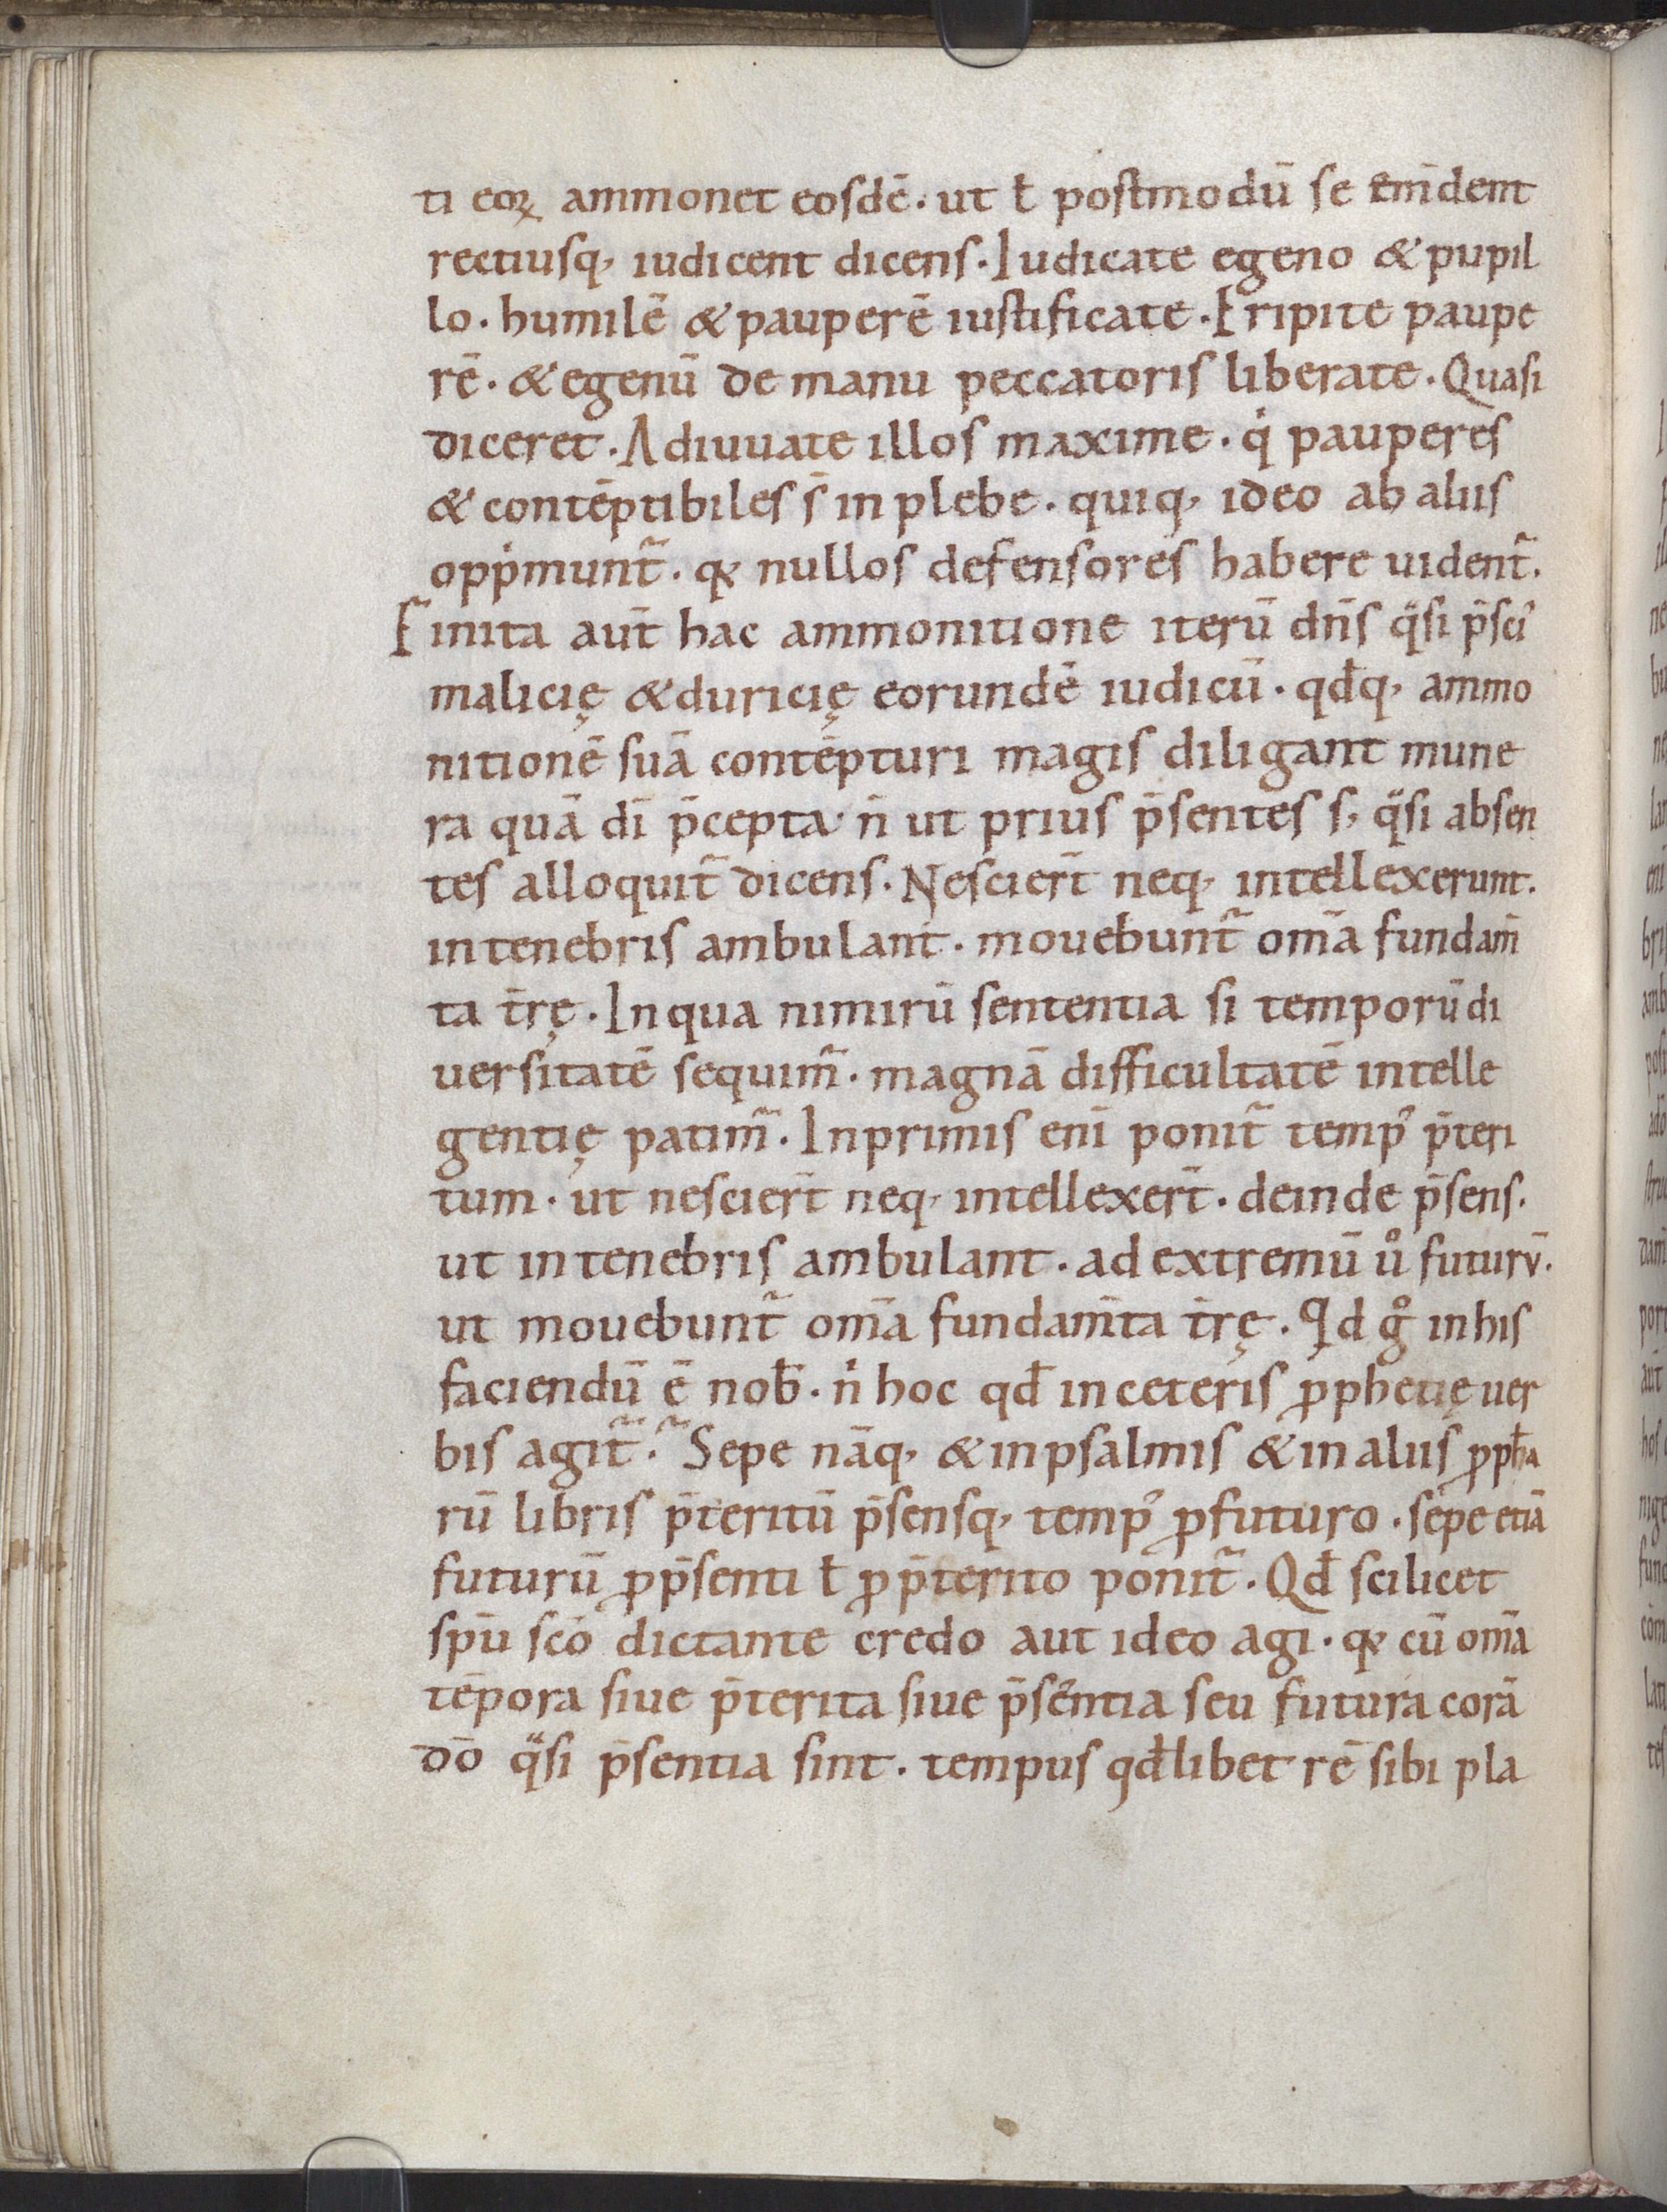 ti eoꝝ ammonet eosdē. ut ł postmodū se em̄dent
rectiusq, iudicent dicens. Iudicate egeno & pupil
lo. humilē & pauperē iustificate. Eripite paupe
rē. & egenū de manu peccatoris liberate. Quasi
diceret. Adiuuate illos maxime. qͥ pauperes
& contēptibiles s̄ in plebe. quiq, ideo ab aliis
oppͥmunt᷑. qꝛ nullos defensores habere uident᷑.
Finita aut̄ hac ammonitione iterū dn̄s qͣsi p̄sci᾽
malicię & duricię eorundē iudicū. qđq, ammo
nitionē suā contēpturi magis diligant mune
ra quā dī p̄cepta n̄ ut prius p̄sentes s, qͣsi absen
tes alloquit᷑ dicens. Nesciert̄ neq, intellexerunt.
in tenebris ambulant. mouebunt᷑ om̄a fundam̄
ta t̄rę. In qua nimirū sententia si temporū di
uersitatē sequim᷑. magnā difficultatē intelle
gentię patim᷑. In primis enī ponit᷑ temp᾽ p̄teri
tum. ut nesciert̄ neq, intellexert̄. deinde p̄sens.
ut in tenebris ambulant. ad extremū uͦ futurv̄.
ut mouebunt᷑ om̄a fundam̄ta t̄rę. Qͥd gͦ in his
faciendū ē nob̄. nͥ hoc qđ in ceteris ꝓphetię uer
bis agit᷑. Sepe nāq, & in psalmis & in aliis ꝓpħa
rū libris p̄teritū p̄sensq, temp᾽ ꝓ futuro. sepe etiā
futurū ꝓ p̄senti ł ꝓ p̄terito ponit᷑. Qđ scilicet
spū scō dictante credo aut ideo agi. qꝛ cū om̄a
tēpora siue p̄terita siue p̄sentia seu futura corā
dō qͣsi p̄sentia sint. tempus qđlibet rē sibi pla